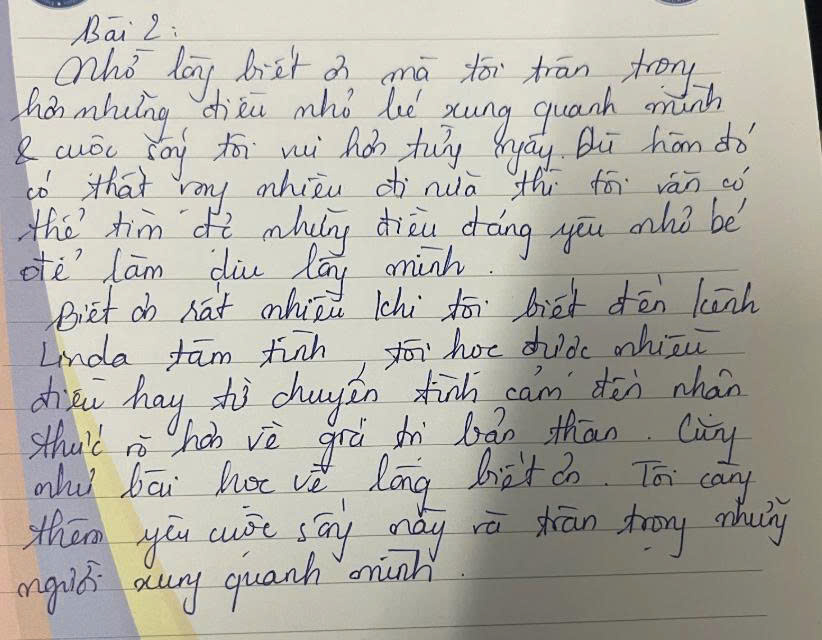 Bài 2:
Nhờ lòng biết ơn mà tôi trân trọng
hơn những điều nhỏ bé xung quanh mình
& cuộc sống tôi vui hơn từng ngày. Dù hôm đó
có thất vọng nhiều đi nữa thì tôi vẫn có
thể tìm đc những điều đáng yêu nhỏ bé
để làm dịu lòng mình.
Biết ơn rất nhiều khi tôi biết đến kênh
Linda tâm tình, tôi học được nhiều
điều hay từ chuyện tình cảm đến nhận
thức rõ hơn về giá trị bản thân. Cũng
như bài học về lòng biết ơn. Tôi càng
thêm yêu cuộc sống này và trân trọng những
người xung quanh mình.